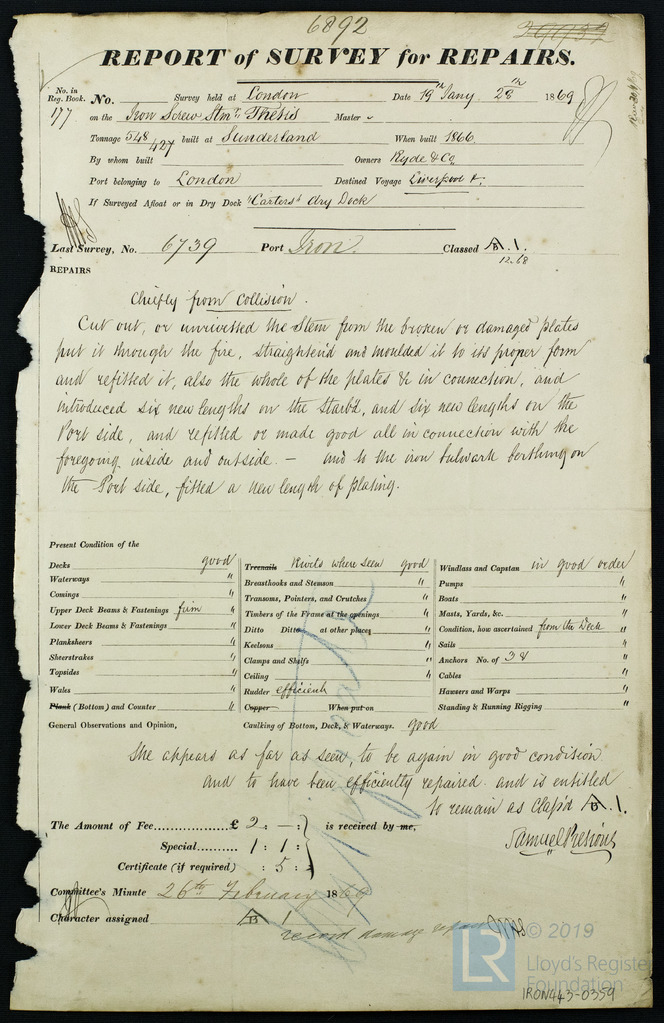 6892
REPORT of SURVEY for REPAIRS.
No. in Reg. Book. No. Survey held at London Date 19th Jany. 28th 1869
177 on the Iron Screw Stmr. Thetis Master
Tonnage 548 427 built at Sunderland When built 1866
By whom built Owners Ryde & Co.
Port belonging to London Destined Voyage Liverpool &.
If Surveyed Afloat or in Dry Dock "Carters" dry Dock
Last Survey, No. 6739 Port Iron. Classed A B 1.
12.68
REPAIRS
Chiefly from Collision.
Cut out, or unrivitted the Stem from the broken or damaged plates
put it through the fire, straightend and moulded it to its proper form
and refitted it, also the whole of the plates &c in connection, and
introduced six new lengths on the Starbd, and six new lengths on the
Port side, and refitted or made good all in connection with the
foregoing inside and outside. — and to the iron bulwark berthing on
the Port side, fitted a new length of plating.
Present Condition of the
Decks good
Waterways "
Comings "
Upper Deck Beams & Fastenings firm "
Lower Deck Beams & Fastenings "
Planksheers "
Sheerstrakes "
Topsides "
Wales "
Plank (Bottom) and Counter "
General Observations and Opinion,
Treenails Rivets where seen good
Breasthooks and Stemson "
Transoms, Pointers, and Crutches "
Timbers of the Frame at the openings "
Ditto Ditto at other places "
Keelsons "
Clamps and Shelfs "
Ceiling "
Rudder efficient "
Copper When put on
Caulking of Bottom, Deck, & Waterways. good
Windlass and Capstan in good order
Pumps "
Boats "
Masts, Yards, &c. "
Condition, how ascertained from the Deck "
Sails "
Anchors No. of 3 & "
Cables "
Hawsers and Warps "
Standing & Running Rigging "
She appears as far as seen, to be again in good condition
and to have been efficiently repaired. and is entitled
to remain as Class'd A B 1.
The Amount of Fee £ 2 : — : is received by me,
Special 1 : 1 :
Certificate (if required) : 5 :
Samuel Pretious
Committee's Minute 26th February 1869
Character assigned A B 1
record damage repair
LR © 2019
Lloyd's Register
Foundation
IRON443-0359